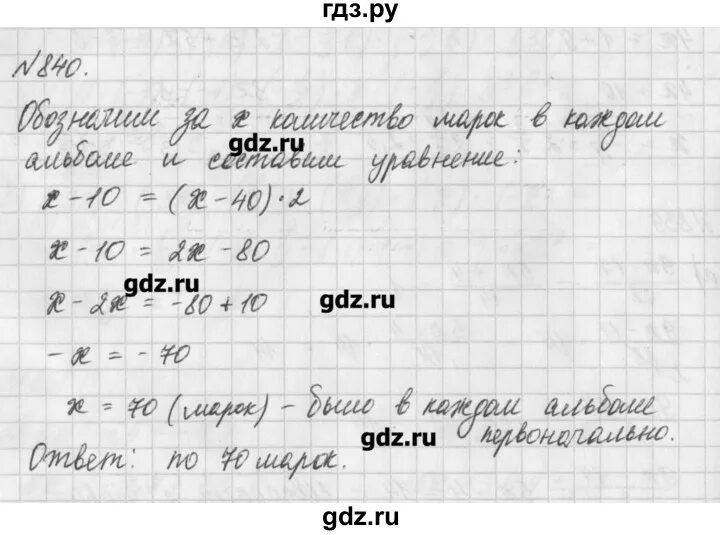 гдз.ру
№840.
Обозначим за x количество марок в каждом
gdz.ru
альбоме и составим уравнение:
x - 10 = (x - 40) · 2
x - 10 = 2x - 80
gdz.ru
x - 2x = -80 + 10
gdz.ru
- x = - 70
x = 70 (марок) - было в каждом альбоме
gdz.ru
первоначально.
Ответ: по 70 марок.
gdz.ru